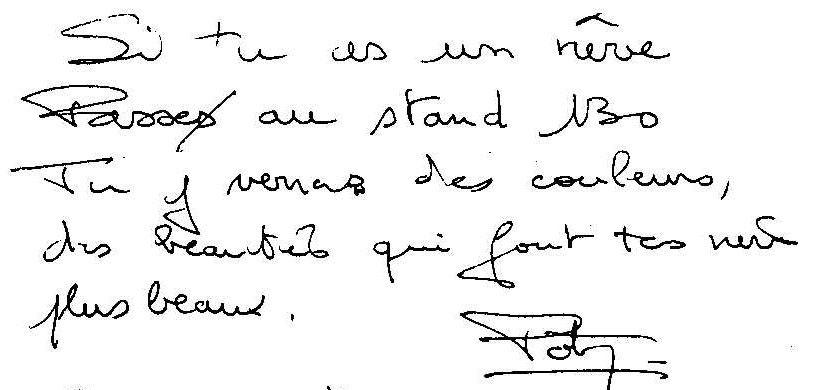 Si tu as un rêve
Passes au stand 130
Tu y verras des couleurs,
des beautés qui font tes rêve
plus beaux.